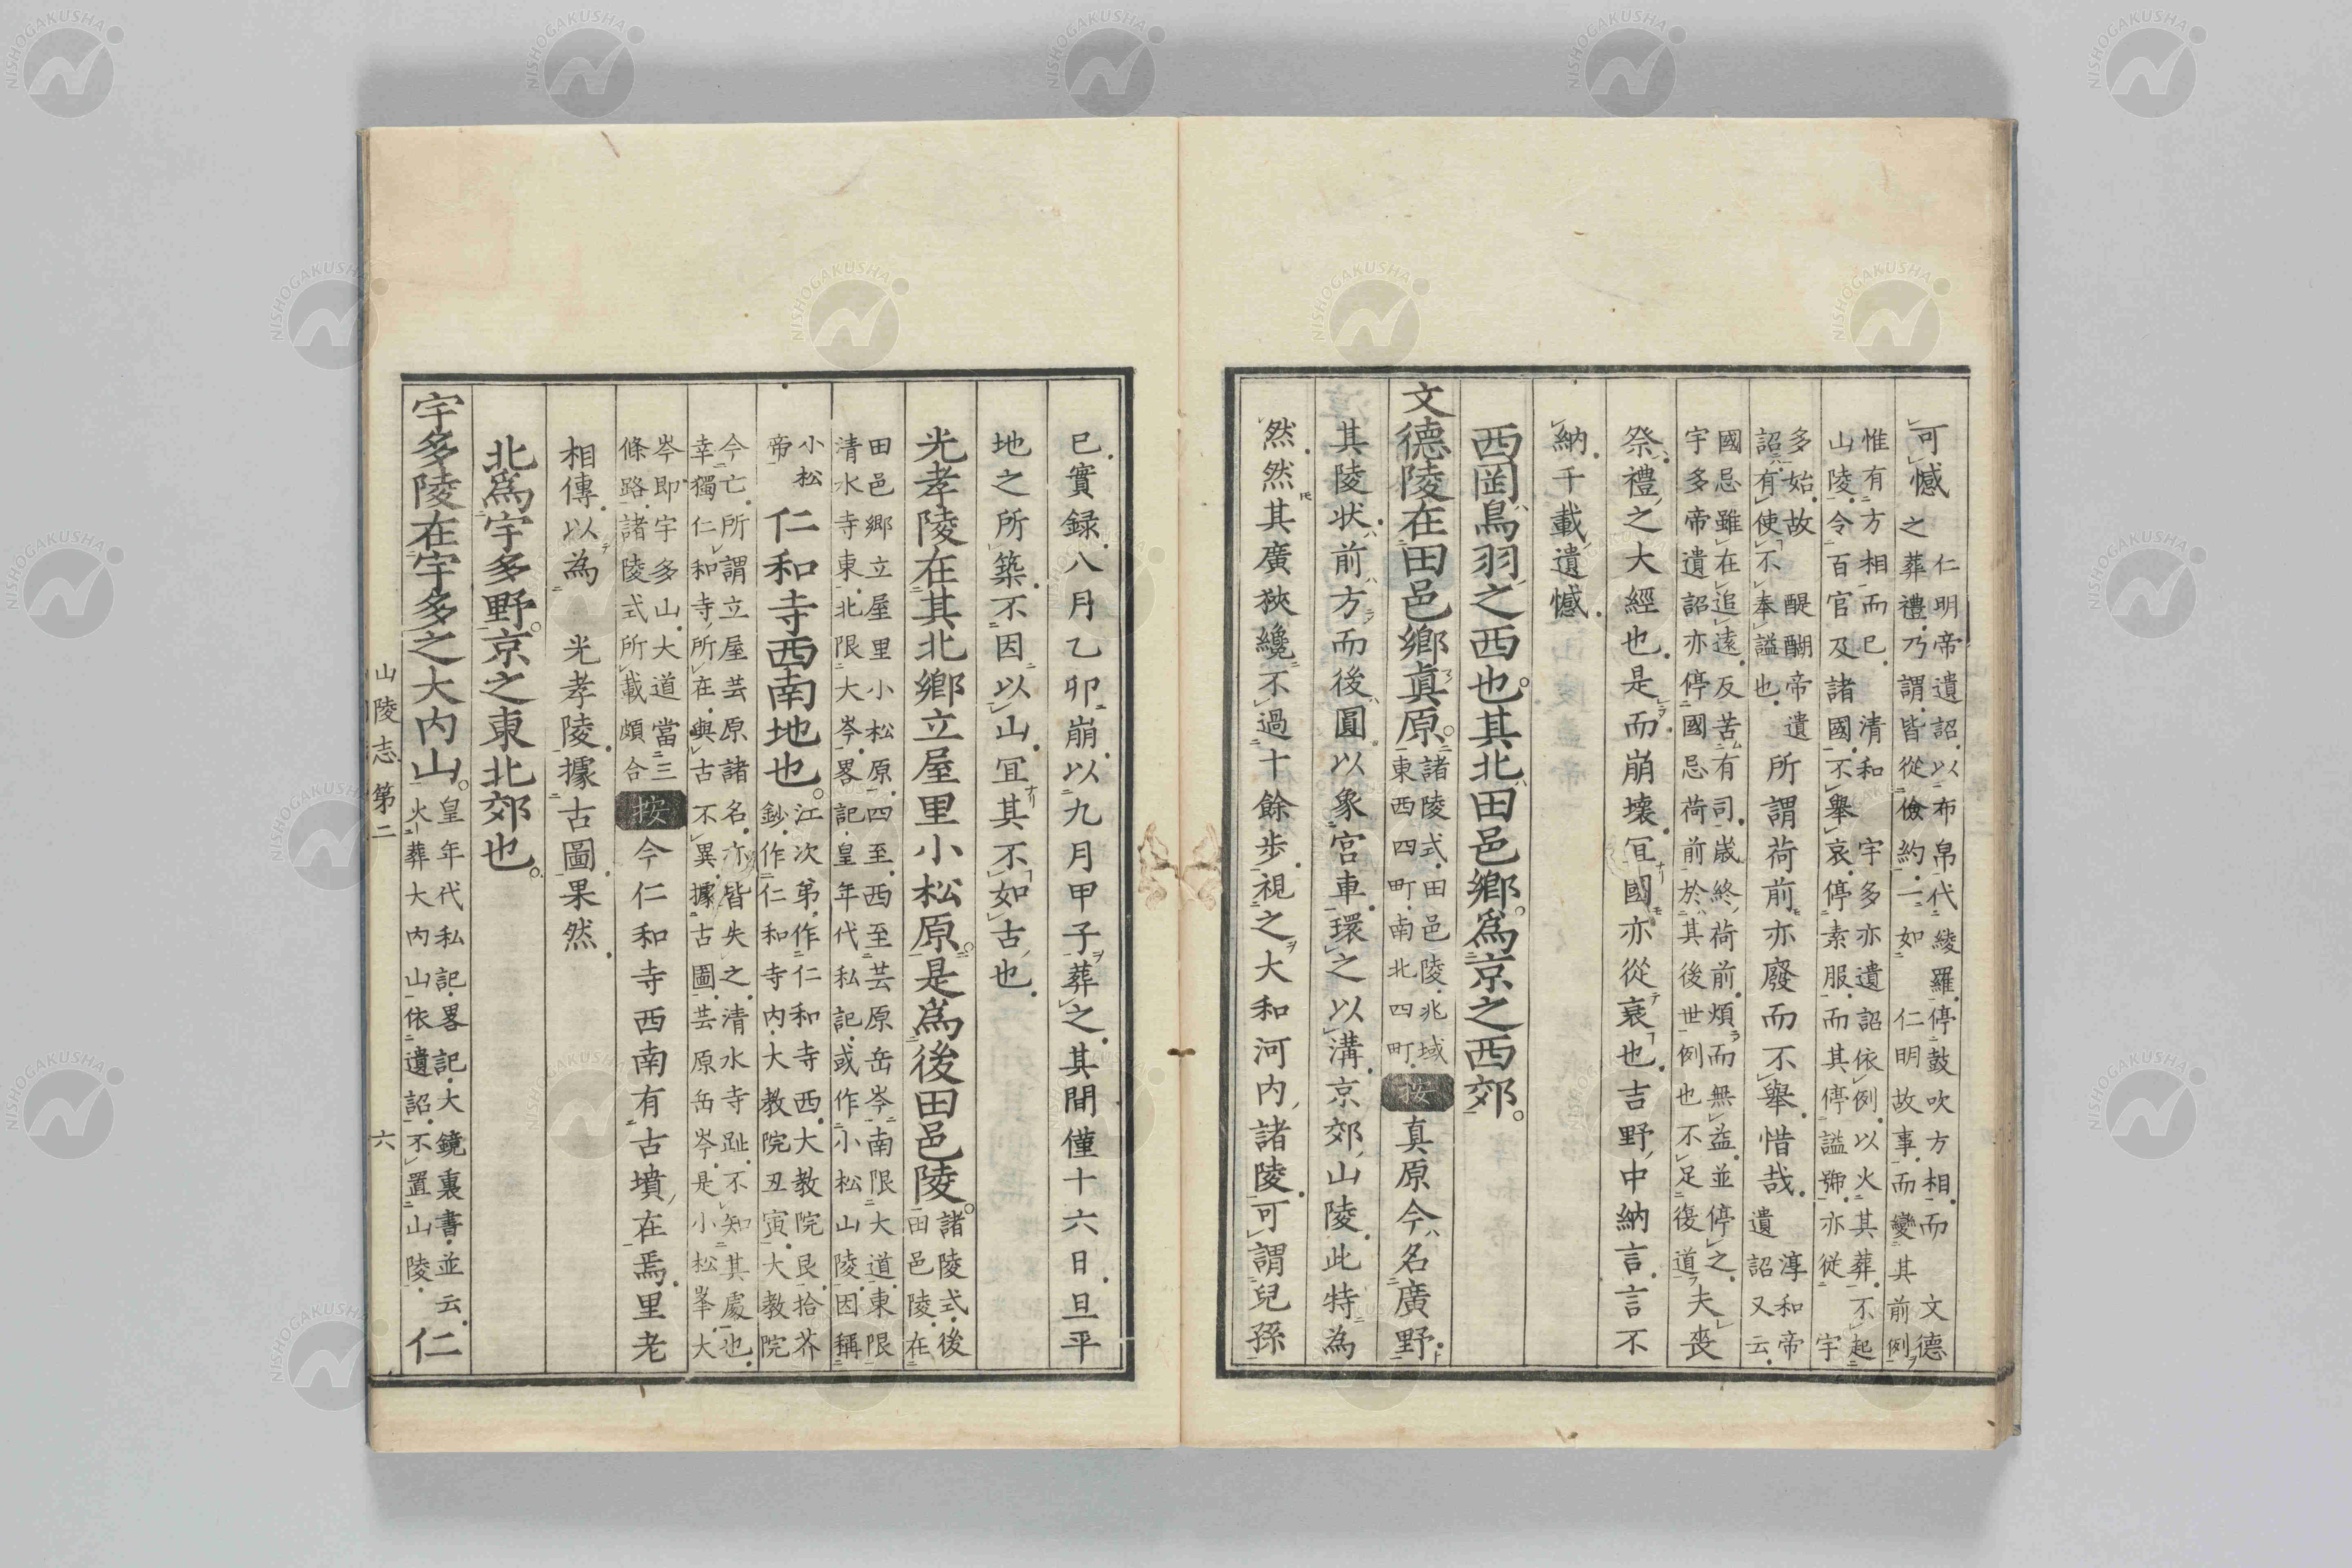 可憾
仁明帝遺詔以布帛代綾羅停鼓吹方相而 文德
之葬禮乃謂皆從儉約一如 仁明故事而變其前例
惟有方相而已 清和 宇多亦遺詔依例以火其葬不起
山陵令百官及諸國不舉哀停素服而其停謚號亦從 宇
多始故 醍醐帝遺
詔有使不奉謚也
所謂荷前亦廢而不舉惜哉
淳和帝
遺詔又云
國忌雖在追遠反苦有司歳終荷前煩而無益並停之
宇多帝遺詔亦停國忌荷前於其後世例也不足復道
夫喪
祭禮之大經也是而崩壞冝國亦從衰也吉野中納言言不
納千載遺憾
西罔鳥羽之西也其北田邑鄉爲京之西郊
文德陵在田邑鄉眞原
諸陵式田邑陵兆域
東西四町南北四町
按真原今名廣野
其陵状前方而後圓以象宮車環之以溝京郊山陵此特為
然然其廣狹纔不過十餘步視之大和河内諸陵可謂兒孫
已實録八月乙卯崩以九月甲子葬之其間僅十六日且平
地之所築不因以山冝其不如古也
光孝陵在其北鄉立屋里小松原是爲後田邑陵
諸陵式後
田邑陵在
田邑鄉立屋里小松原四至西至芸原岳岑南限大道東限
清水寺東北限大岑畧記皇年代私記或作小松山陵因稱
小松
帝
仁和寺西南地也
江次第作仁和寺西大教院艮拾芥
鈔作仁和寺内大教院丑寅大教院
今亡所謂立屋芸原諸名亦皆失之清水寺趾不知其處也
幸獨仁和寺所在與古不異據古圖芸原岳岑是小松峯大
岑即宇多山大道當三
條路諸陵式所載頗合
按今仁和寺西南有古墳在焉里老
相傳以為 光孝陵據古圖果然
北爲宇多野京之東北郊也
宇多陵在宇多之大内山
皇年代私記畧記大鏡裏書並云
火葬大内山依遺詔不置山陵
仁
山陵志第二 六